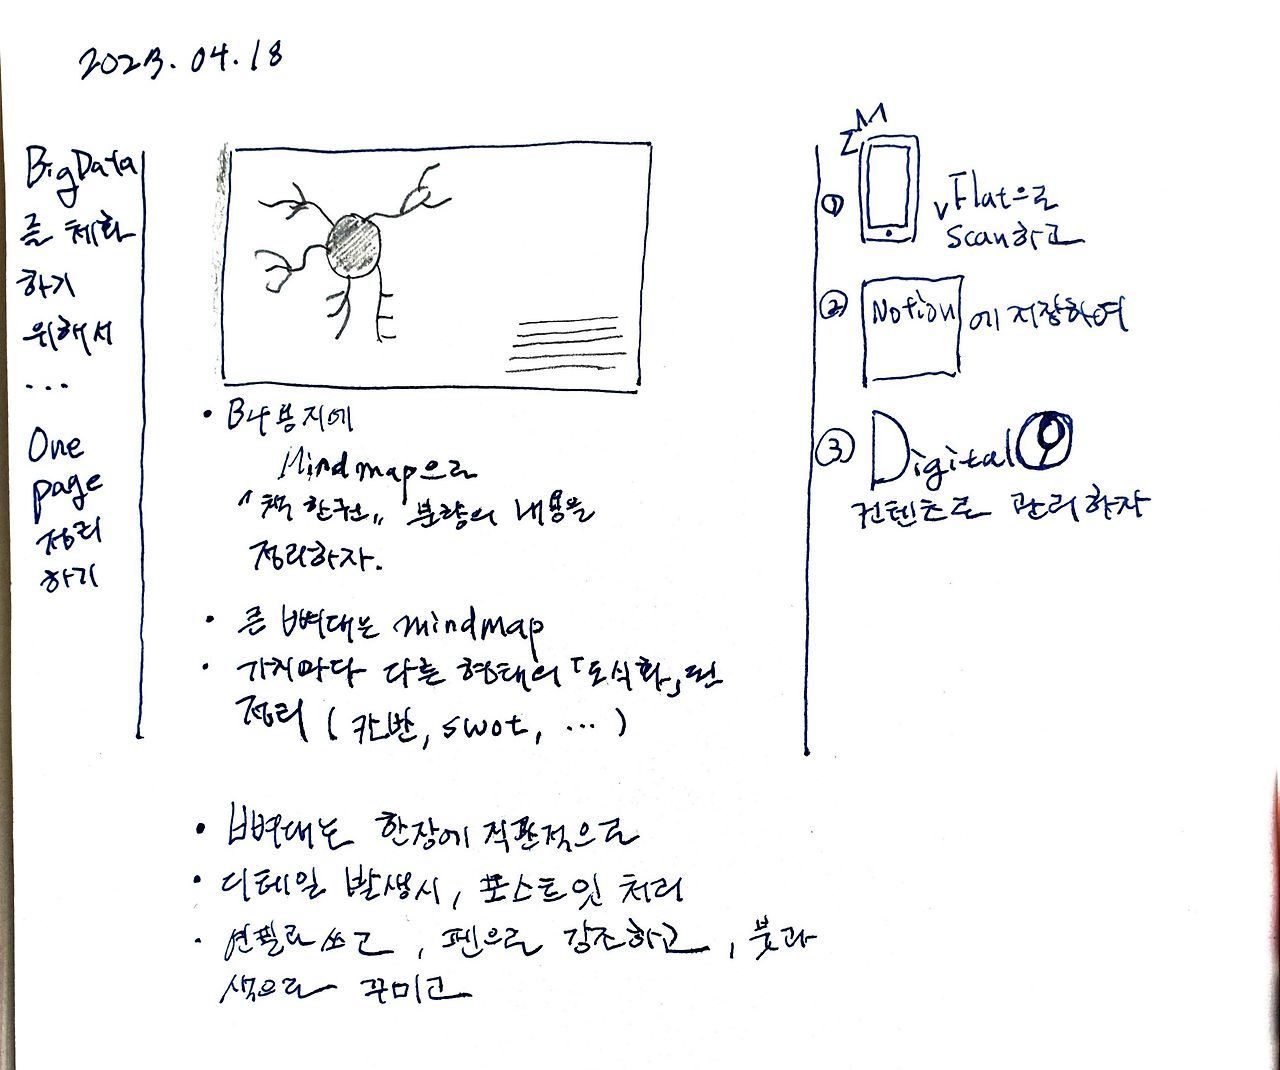 2023.04.18
BigData
를 체화
하기
위해서
...
One
page
정리
하기
• B4용지에
Mindmap으로
"책 한권" 분량의 내용을
정리하자.
• 큰 뼈대는 mindmap
• 가지마다 다른 형태의 「도식화」된
정리 (칸반, swot, ...)
• 뼈대는 한장에 직관적으로
• 디테일 발생시, 포스트잇 처리
• 연필로 쓰고, 펜으로 강조하고, 붓과
색으로 꾸미고
①
vFlat으로
scan하고
② Notion에 저장하여
③ Digital
컨텐츠로 관리하자